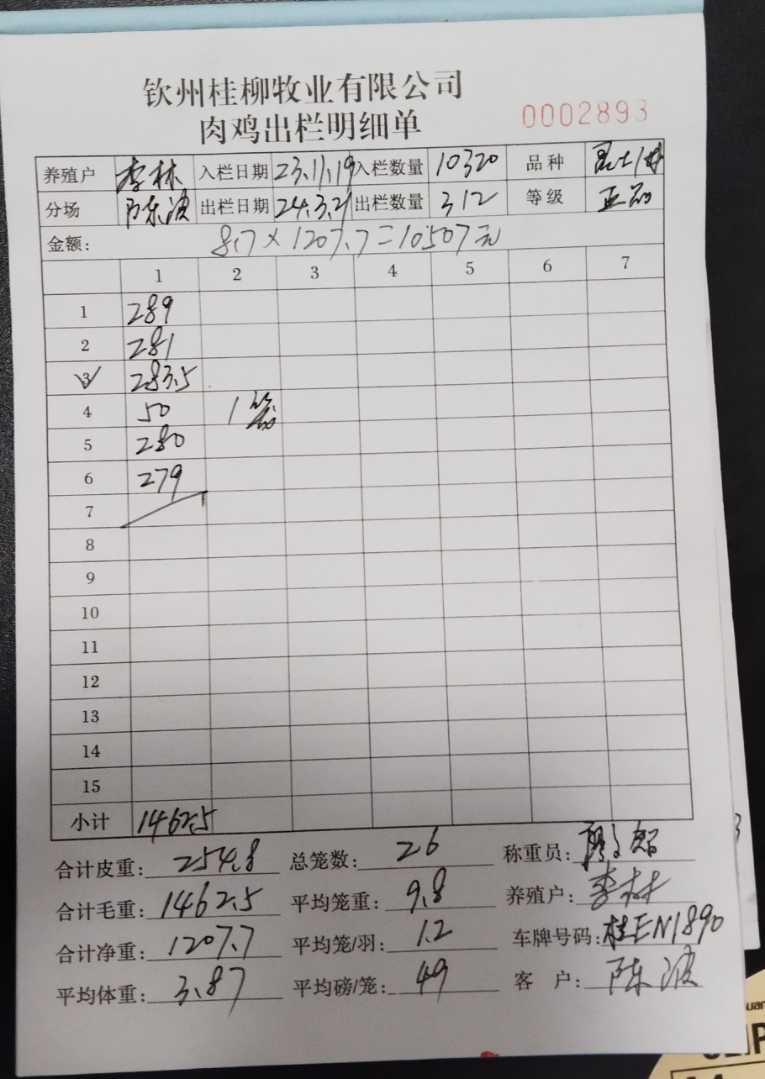 钦州桂柳牧业有限公司
肉鸡出栏明细单
0002893
养殖户 李林 入栏日期 23.11.19 入栏数量 10320 品种
分场 陈波 出栏日期 24.3.21 出栏数量 312 等级
金额: 8.7×1207.7=10507元
1 2 3 4 5 6 7
1 289
2 281
3 283.5
4 50 1笼
5 280
6 279
7
8
9
10
11
12
13
14
15
小计 1462.5
合计皮重: 254.8 总笼数: 26 称重员:
合计毛重: 1462.5 平均笼重: 9.8 养殖户: 李林
合计净重: 1207.7 平均笼/羽: 12 车牌号码: 桂EN1890
平均体重: 3.87 平均磅/笼: 49 客户: 陈波